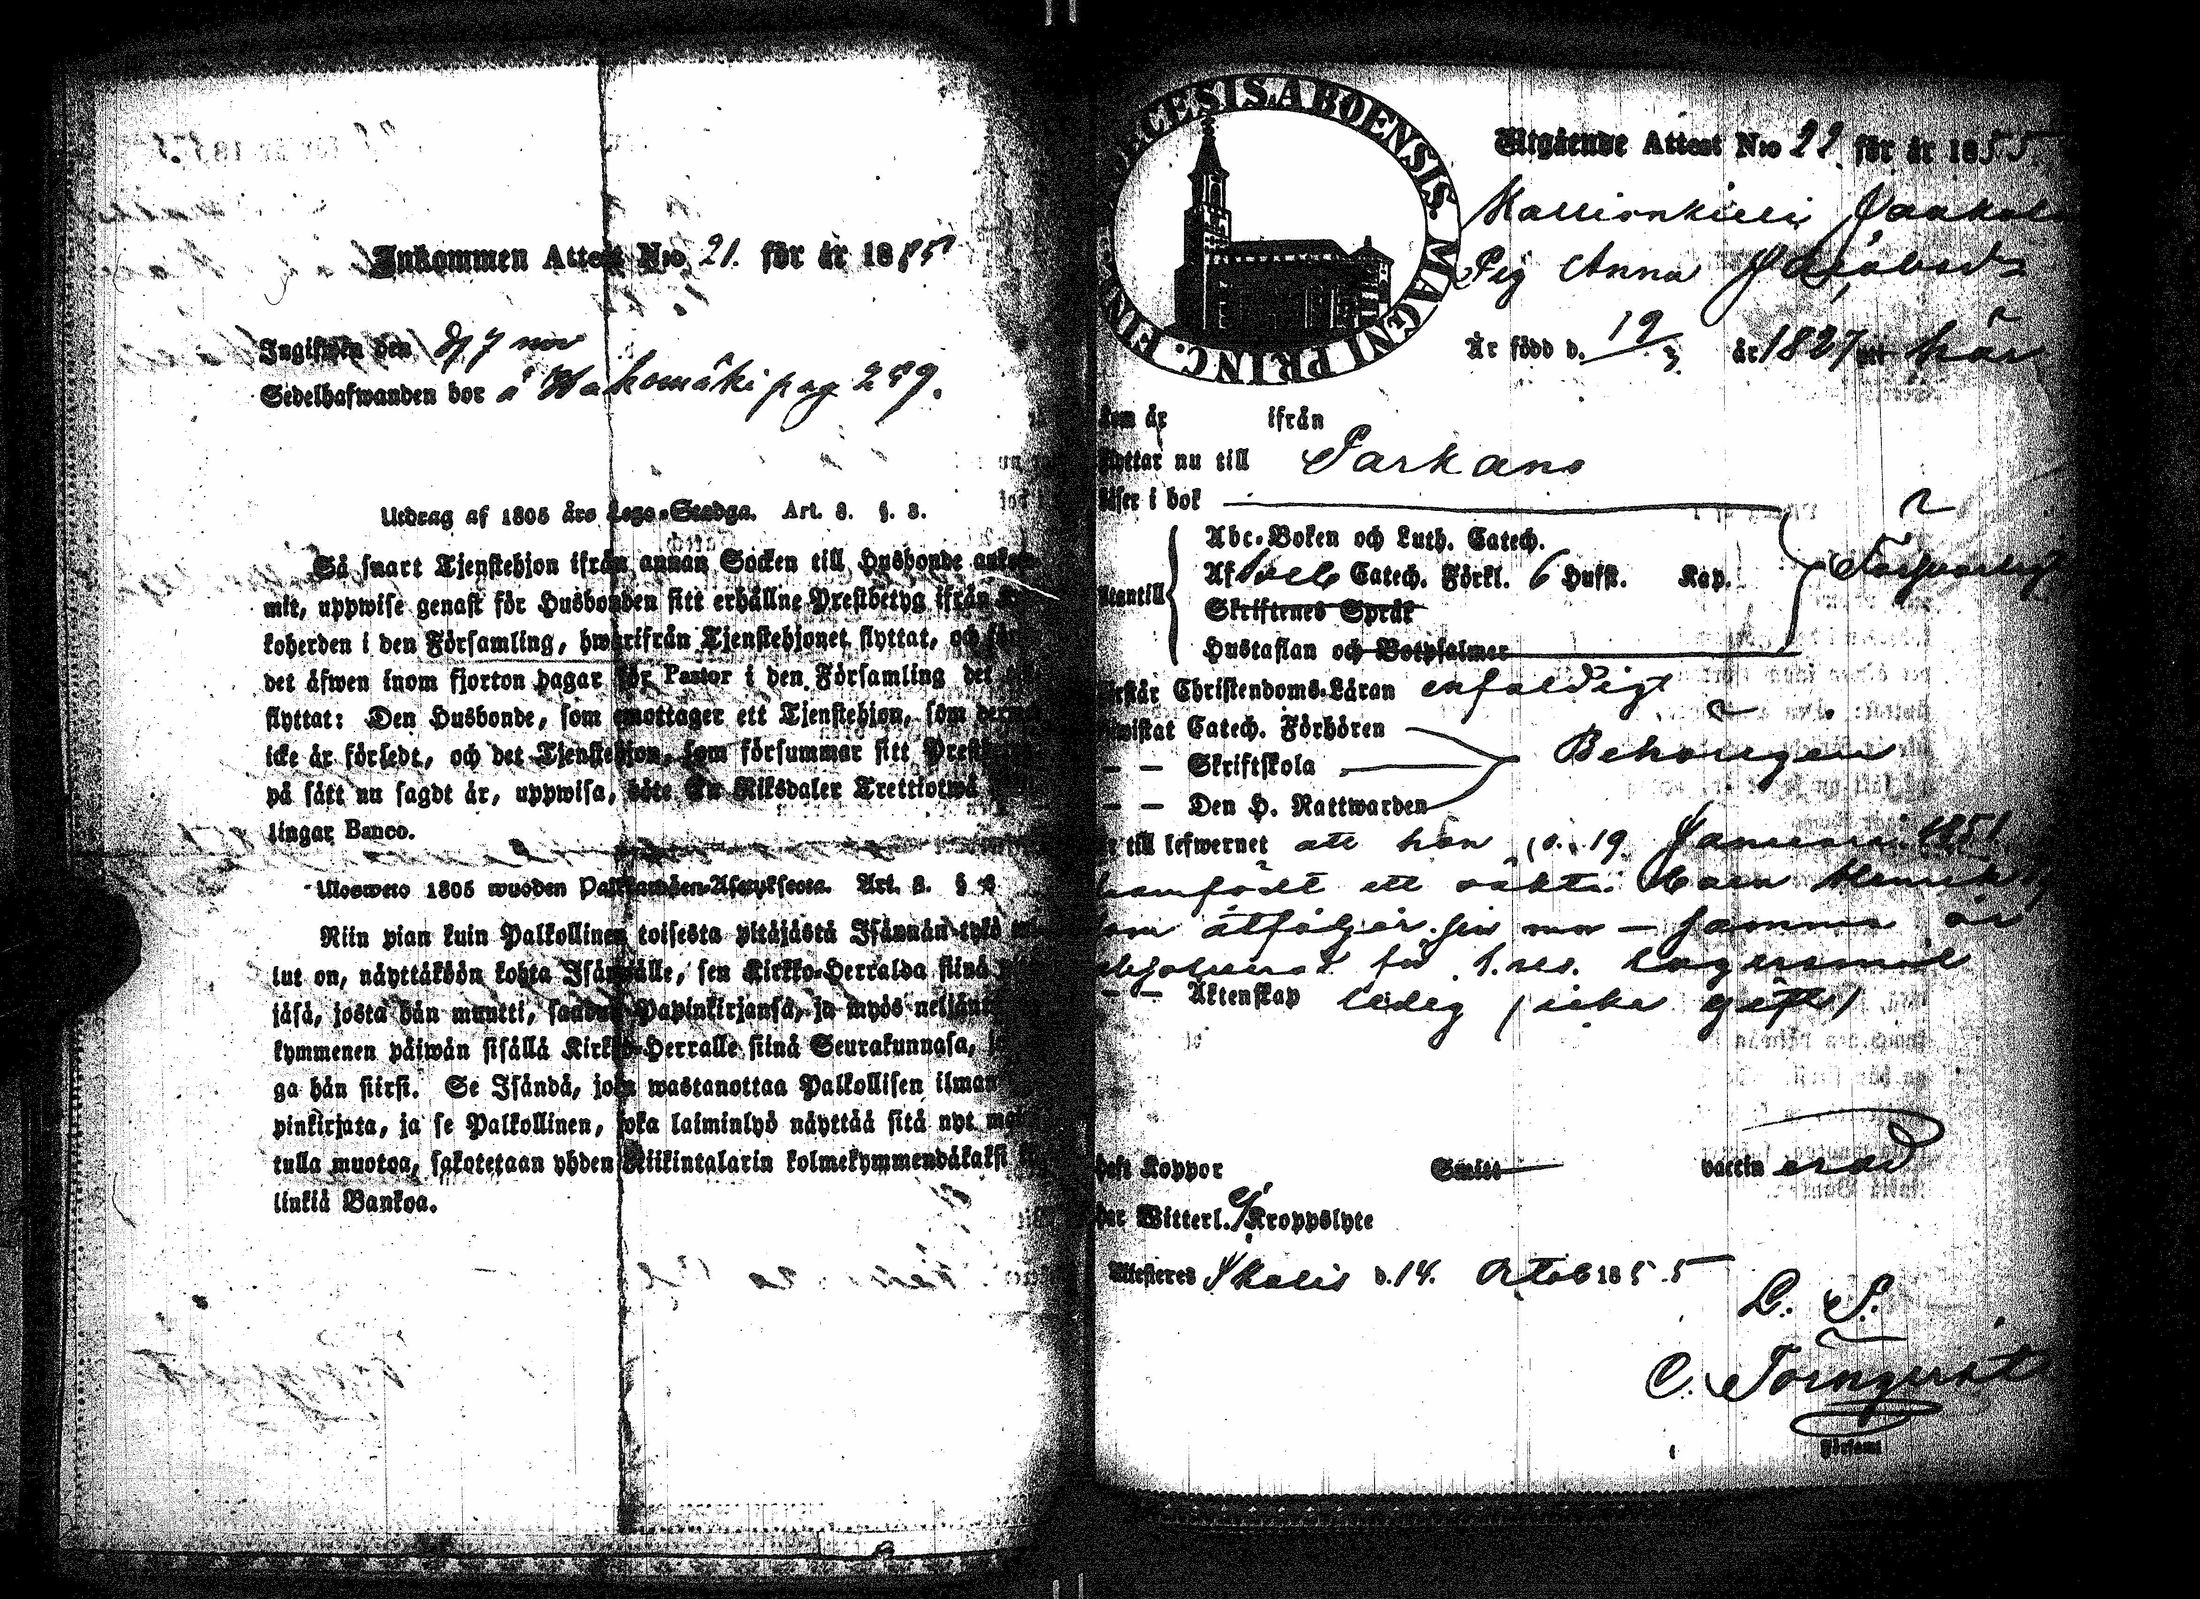 Inkommen Attest N:o 21. för år 1855
Ingifwen den d 7 nov
Sedelhafwanden bor å Hakomäki pag 259.
Utdrag af 1805 års Lego-Stadga. Art. 8. §. 3.
Så snart Tjenstehjon ifrån annan Socken till Husbonde ankom-
mit, uppwise genast för Husbonden sitt erhållne Prestbetyg ifrån
koherden i den Församling, hwarifrån Tjenstehjonet flyttat, och
det äfwen inom fjorton dagar för Pastor i den Församling det
flyttat: Den Husbonde, som emottager ett Tjenstehjon, som dermed
icke är försedt, och det Tjenstehjon, som försummar sitt
på sätt nu sagdt är, uppwisa, böte En Riksdaler Trettiotwå
lingar Banco.
Ulosweto 1805 wuoden Palkkawäen-Asetuksesta. Art. 8. §
Niin pian kuin Palkollinen toisesta pitäjästä Isännän tykö
lut on, näyttäköön kohta Isännälle, sen Kirkko-Herralda siinä
jäsä, josta hän muutti, saadun Papinkirjansa, ja myös neljän
kymmenen päiwän sisällä Kirkko-Herralle siinä Seurakunnasa,
ga hän siirsi. Se Isändä, joka wastanottaa Palkollisen ilman
pinkirjata, ja se Palkollinen, joka laiminlyö näyttää sitä nyt
tulla muotoa, sakotetaan yhden Riikintalarin kolmekymmendäkaksi
linkiä Bankoa.
DIOECESIS ABOENSIS. MAGNI PRINC. FIN
Utgående Attest N:o 22. för år 1855.
Kallionkieli Jaakola
Pig Anna Jacobsdr
Är född d. 19/3 år 1827 här
kom år ifrån
flyttar nu till Parkano
läser i bok
Abc-Boken och Luth. Catech.
Af Catech. Förkl. 6 Hufst. Kap.
utantill Skriftenes Språk
Hustaflan och Botpsalmer
Försvarligt
förstår Christendoms-Läran enfaldigt
bewistat Catech. Förhören
— — Skriftskola
Behörigen
— — Den H. Nattwarden
till lefwernet att hon d. 19 Januari 1851
framfödt ett oäkta barn Henrik
som åtföljer sin mor — samma år
för
— — Äktenskap ledig (icke gift)
haft Koppor Smitt vaccin erad
Witterl. Kroppslyte
Attesteres Ikalis d. 14. Octob 1855
L. S.
C. Törnqvist